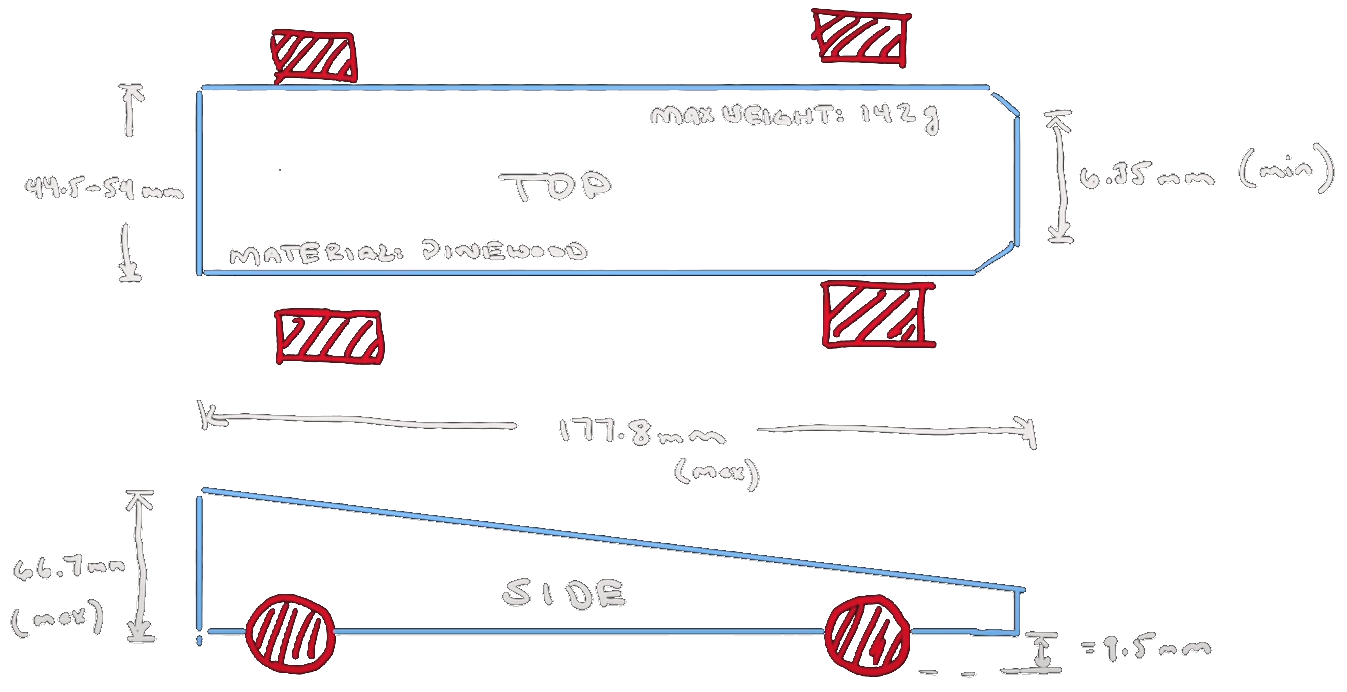 MAX WEIGHT: 142g
44.5-54mm
TOP
6.35mm (min)
MATERIAL: PINEWOOD
177.8mm
(max)
66.7mm
(max)
SIDE
=9.5mm